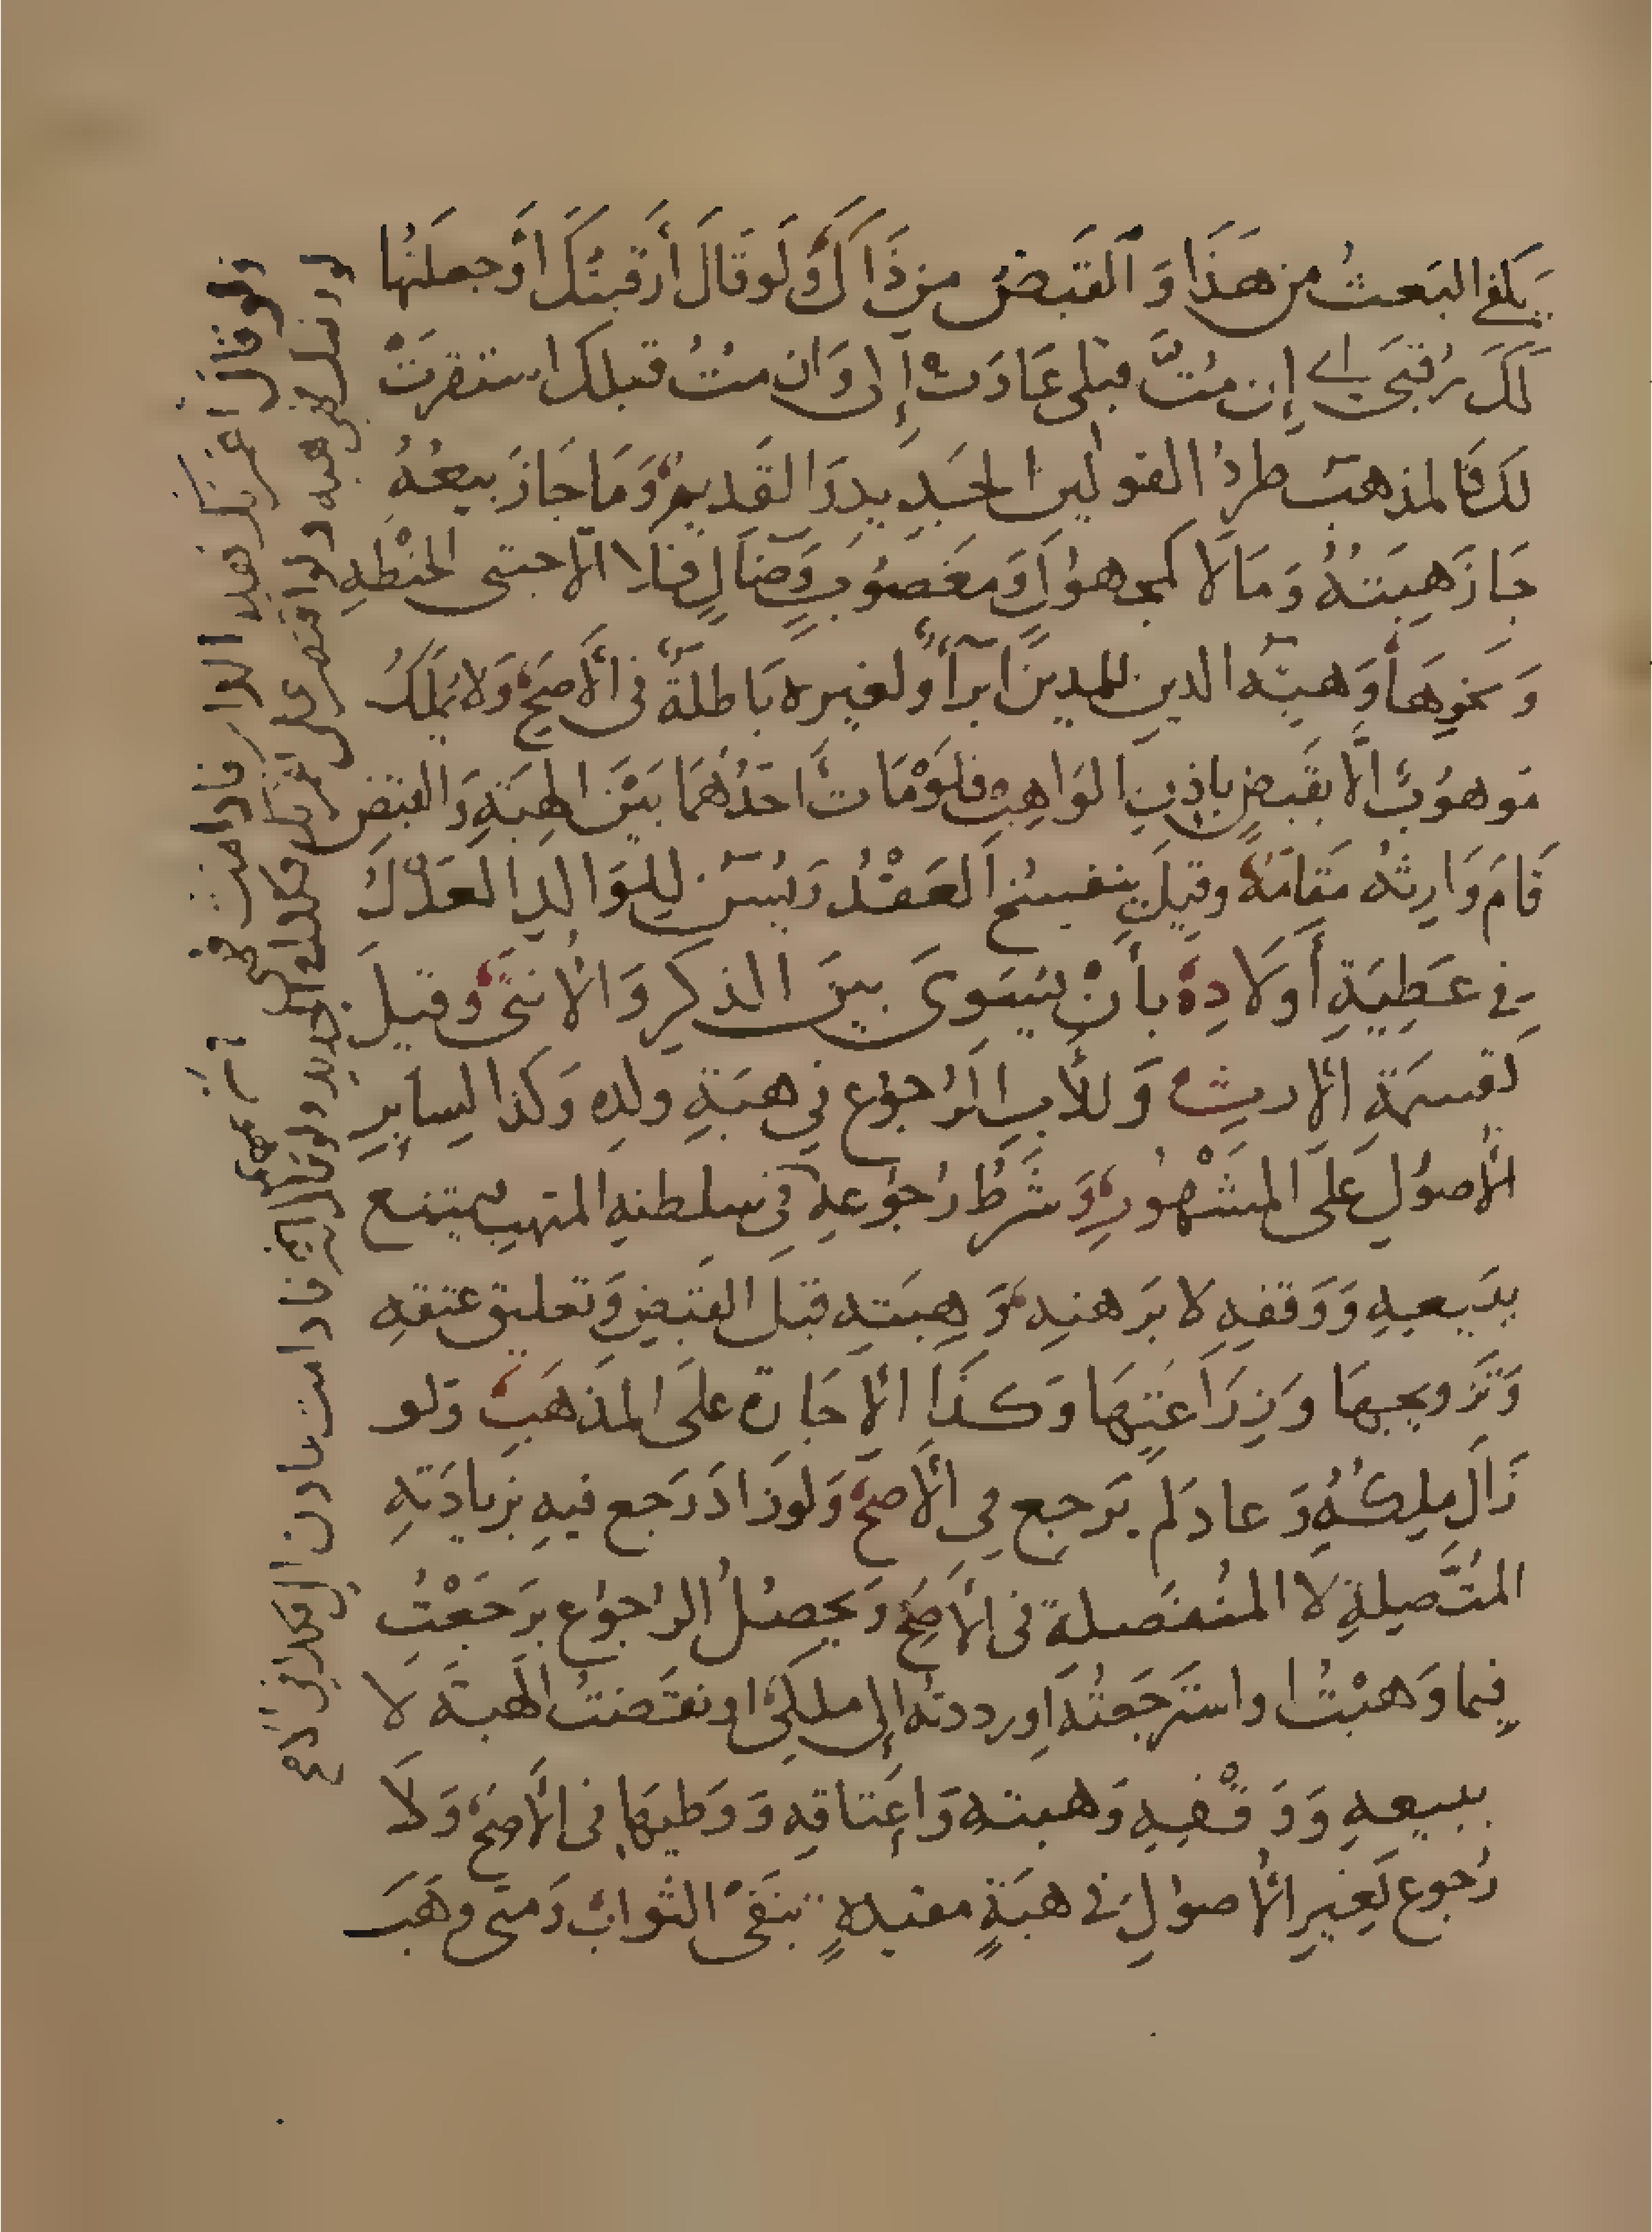 يكفي البعث من هَذَا وَالقَبض من ذَاكَ وَلَو قَالَ أرقبتكَ أوجعلتُها
لَكَ رُقبَى اے إن مُتَّ قبلى عَادَت إلى وَان متُ قبلك استقرتْ
لك فالمذهب طردُ القولين الجَديد وَالقَديم وَمَا جَازَ بيعُهُ
جَازَ هِبَتهُ وَمَا لا كمجهولٍ وَمغصُوبٍ وَضَالٍ فلا الاحبتى الحنْطةِ
وَنحوِهَا وَهبة الدين للمدين ابرآءٌ ولغيره بَاطلةٌ فى الأصَحّ وَلا يملكُ
موهُوبٌ الّا بقَبضٍ باذن الوَاهِب فلوْ مَات احَدُهُمَا بَيْنَ الهبَةِ وَالقبض
قَامَ وَارِثهُ مَقَامَهُ وقيلَ ينفسخ العَقْدُ وَيُسَنّ للوَالدِ العَدْلُ
فِي عَطِيَةِ أَولَادِهِ بأنْ يُسَوىَ بينَ الذكرِ وَالأنثىَ وقيلَ
كقسمَةِ الارثِ وَللأبِ الرُجوُع فيِ هبَةِ ولدِه وَكذا لِسايرِ
الأصوُلِ عَلَى المشْهُورِ وَشَرطُ رُجوُعهِ في سلطنهِ المتهب يمتنع
بِبَيعهِ وَوَقفِهِ لا برَهنهِ وَهِبَتهِ قبلَ القَبضِ وَتعليق عتقهِ
وَتَزويجهَا وَزِرَاعَتهَا وَكذَا الاجَارة علَى المذهَبِ وَلو
زَالَ مِلكُهُ وَعادَ لم يَرجع في الأصحّ وَلو زادَ رَجع فيهِ بزيادَتهِ
المتَّصِلةِ لَا المنُفَصلةِ فى الأصَحّ وَيحصُلُ الرجوُع برَجَعْتُ
فيما وَهبْتُ ا واسترَجَعتُه اورددته إلى ملكِي اونقَضتُ الهبَة لا
ببيعهِ وَوَقْفِهِ وَهبتهِ وَاعتاقهِ وَوَطيهَا فى الأصحّ وَلَا
رُجوع لغيرِ الأصولِ فى هبَةٍ مقيدةٍ بنَفى الثوابْ وَمتى وهَبَ
ولوقال أعمرتك هذه الدار فاذا مت فهى
لورثتك فهى هبه ولو اقتصر على اعمرتك فكذا فى الجديد ولو قال فاذا مت عادت الى فكذا فى الأصح